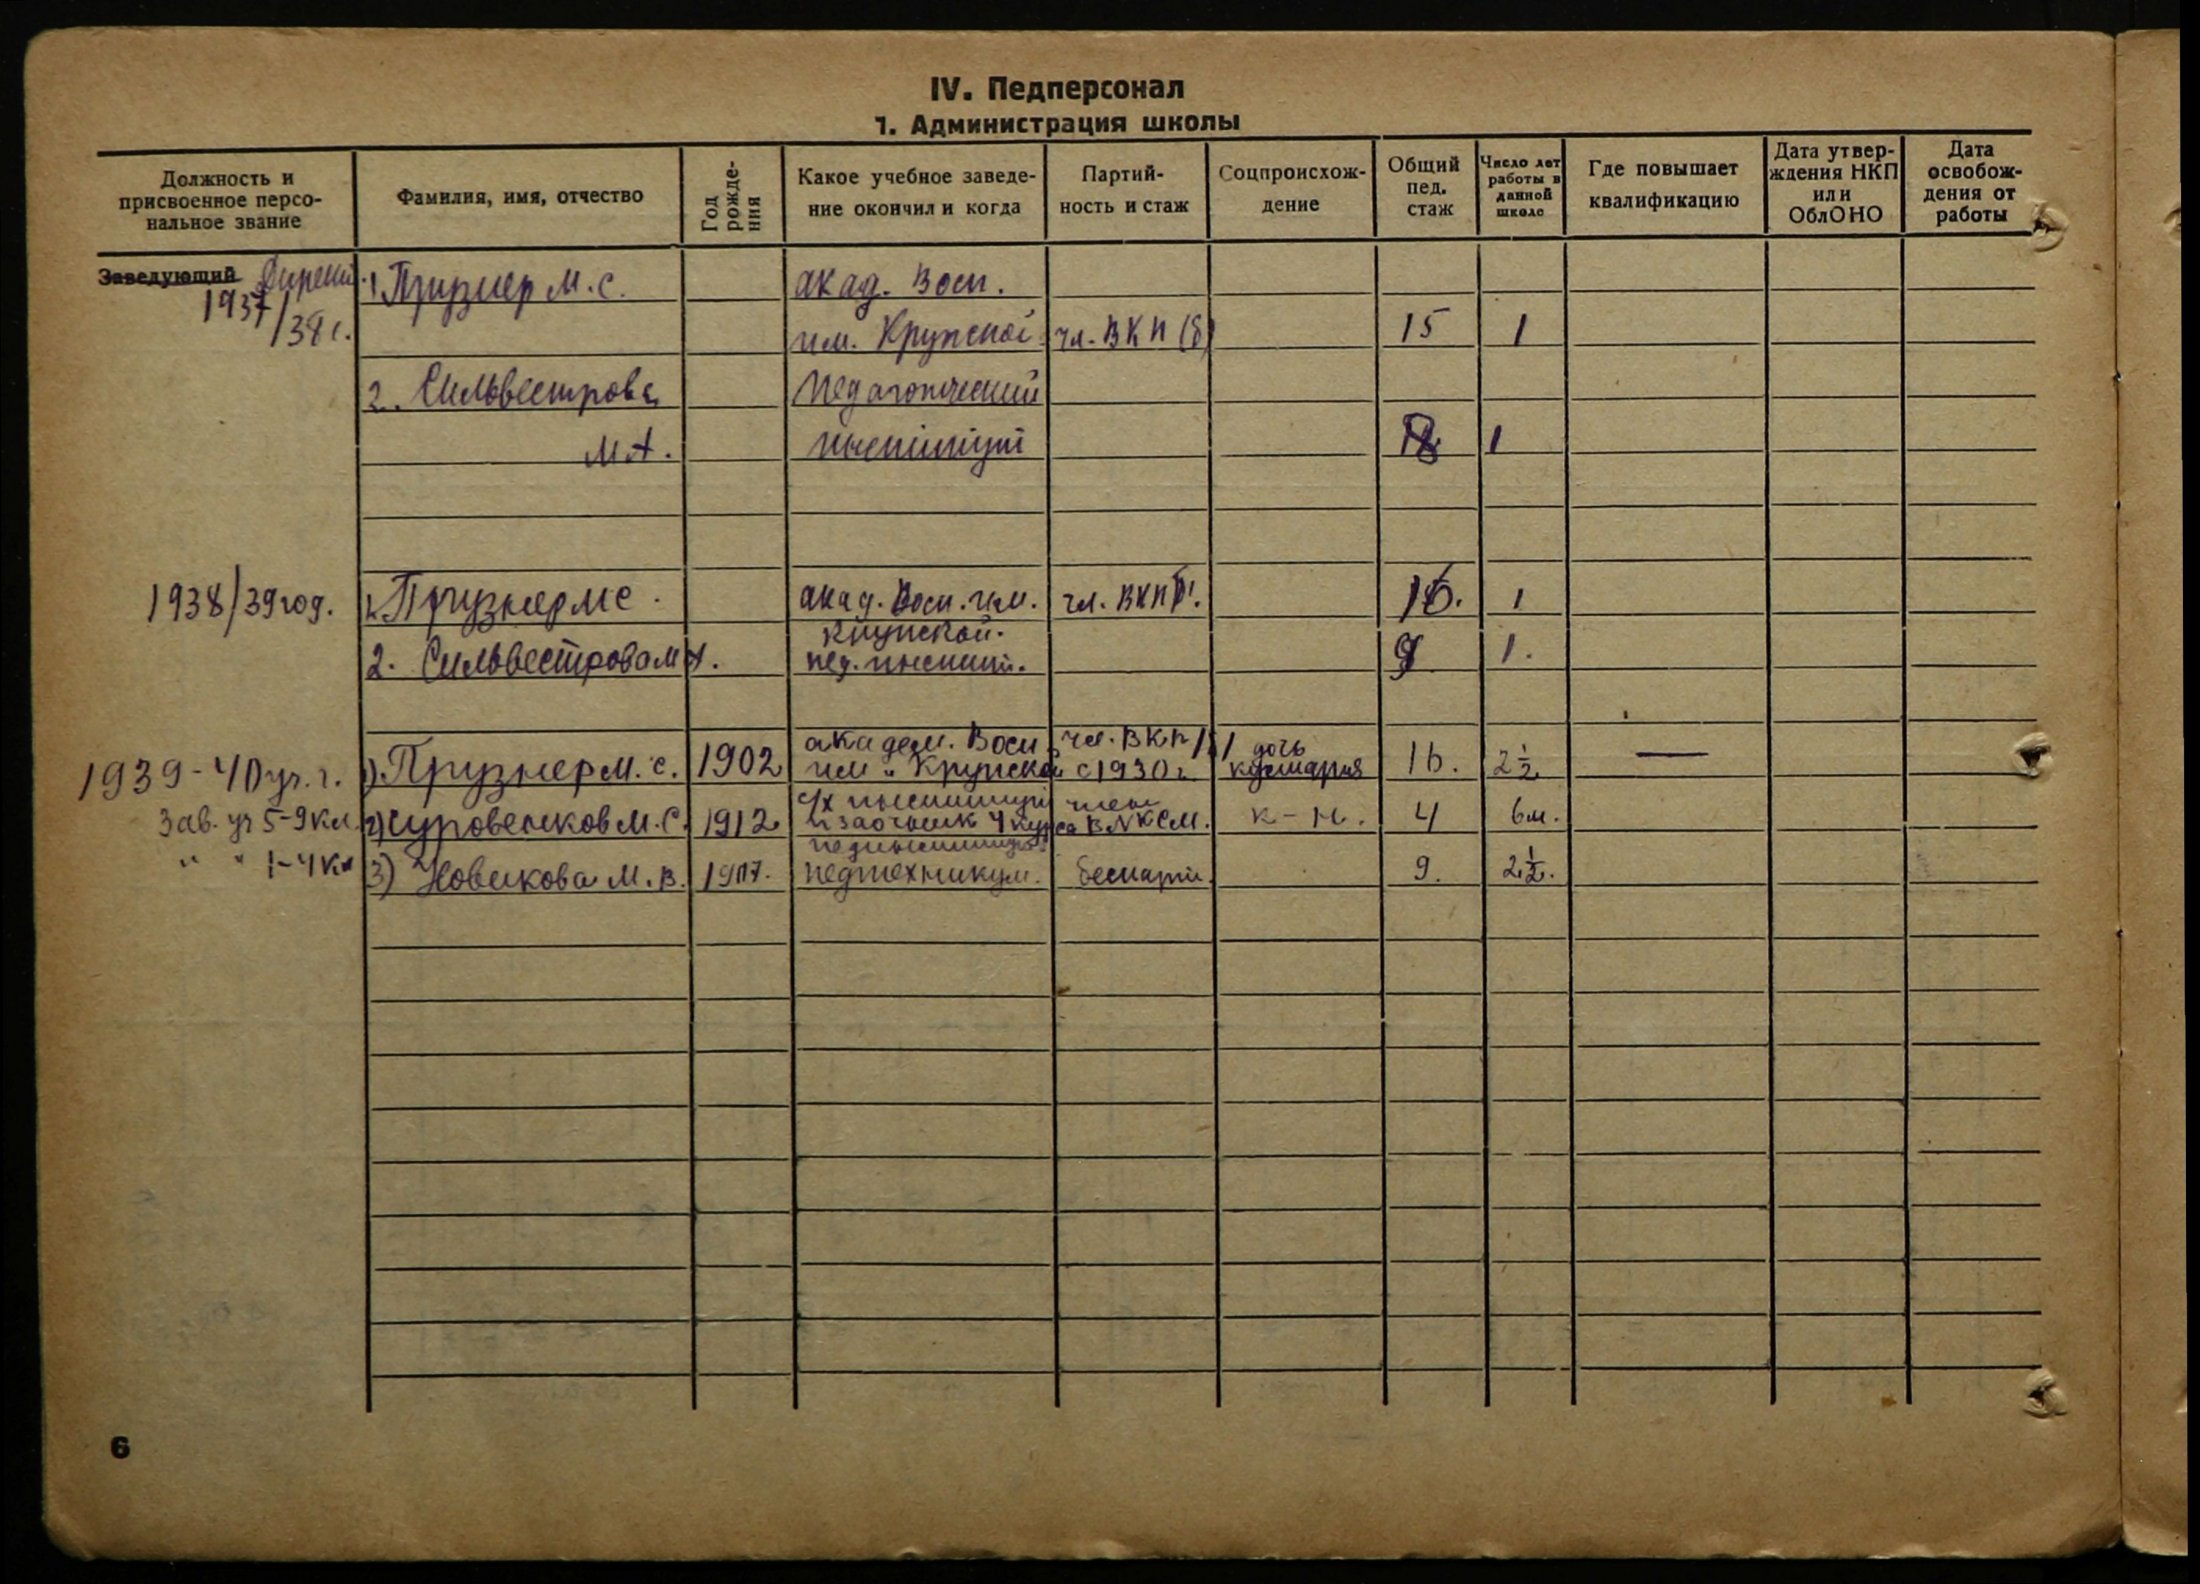 IV. Педперсонал
1. Администрация школы
Должность и присвоенное персо- нальное звание
Фамилия, имя, отчество
Год рожде- ния
Какое учебное заведе- ние окончил и когда
Партий- ность и стаж
Соцпроисхож- дение
Общий пед. стаж
Число лет работы в данной школе
Где повышает квалификацию
Дата утвер- ждения НКП или ОблОНО
Дата освобож- дения от работы
Заведующий 1 Прузнер М.С. акад. Восп.
1937/38 г. им. Крупской чл. ВКП(б) 15 1
2. Сильвестрова Педагогический
М.А. институт 1
1938/39 год. 1. Прузнер М С. акад. Восп. им. чл. ВКПб. 16. 1
Крупской.
2. Сильвестрова М А. пед. инстит. 9 1.
академ. Восп чл. ВКП/б/ дочь
1939-40 уч. г. 1) Прузнер М. С. 1902 им. Крупской с 1930 г. кустаря 16. 2 1/2
с/х институт член
Зав. уч 5-9 кл. 2) Суровенков М.С. 1912 и заочник 4 курса ВЛКСМ. к-н. 4 6 м.
пединститута
" " 1-4 кл 3) Новикова М. В. 1907. педтехникум. беспарт. 9. 2 1/2.
6